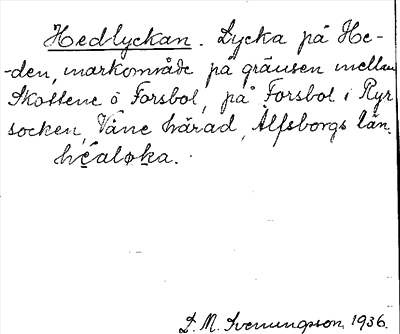 Hedlyckan. Lycka på He-
-den, markområde på gränsen mellan
Skottene o Forsbol, på Forsbol i Ryr
socken, Väne härad, Älfsborgs län.
hḙaløka.
D. M. Svenungsson, 1936.